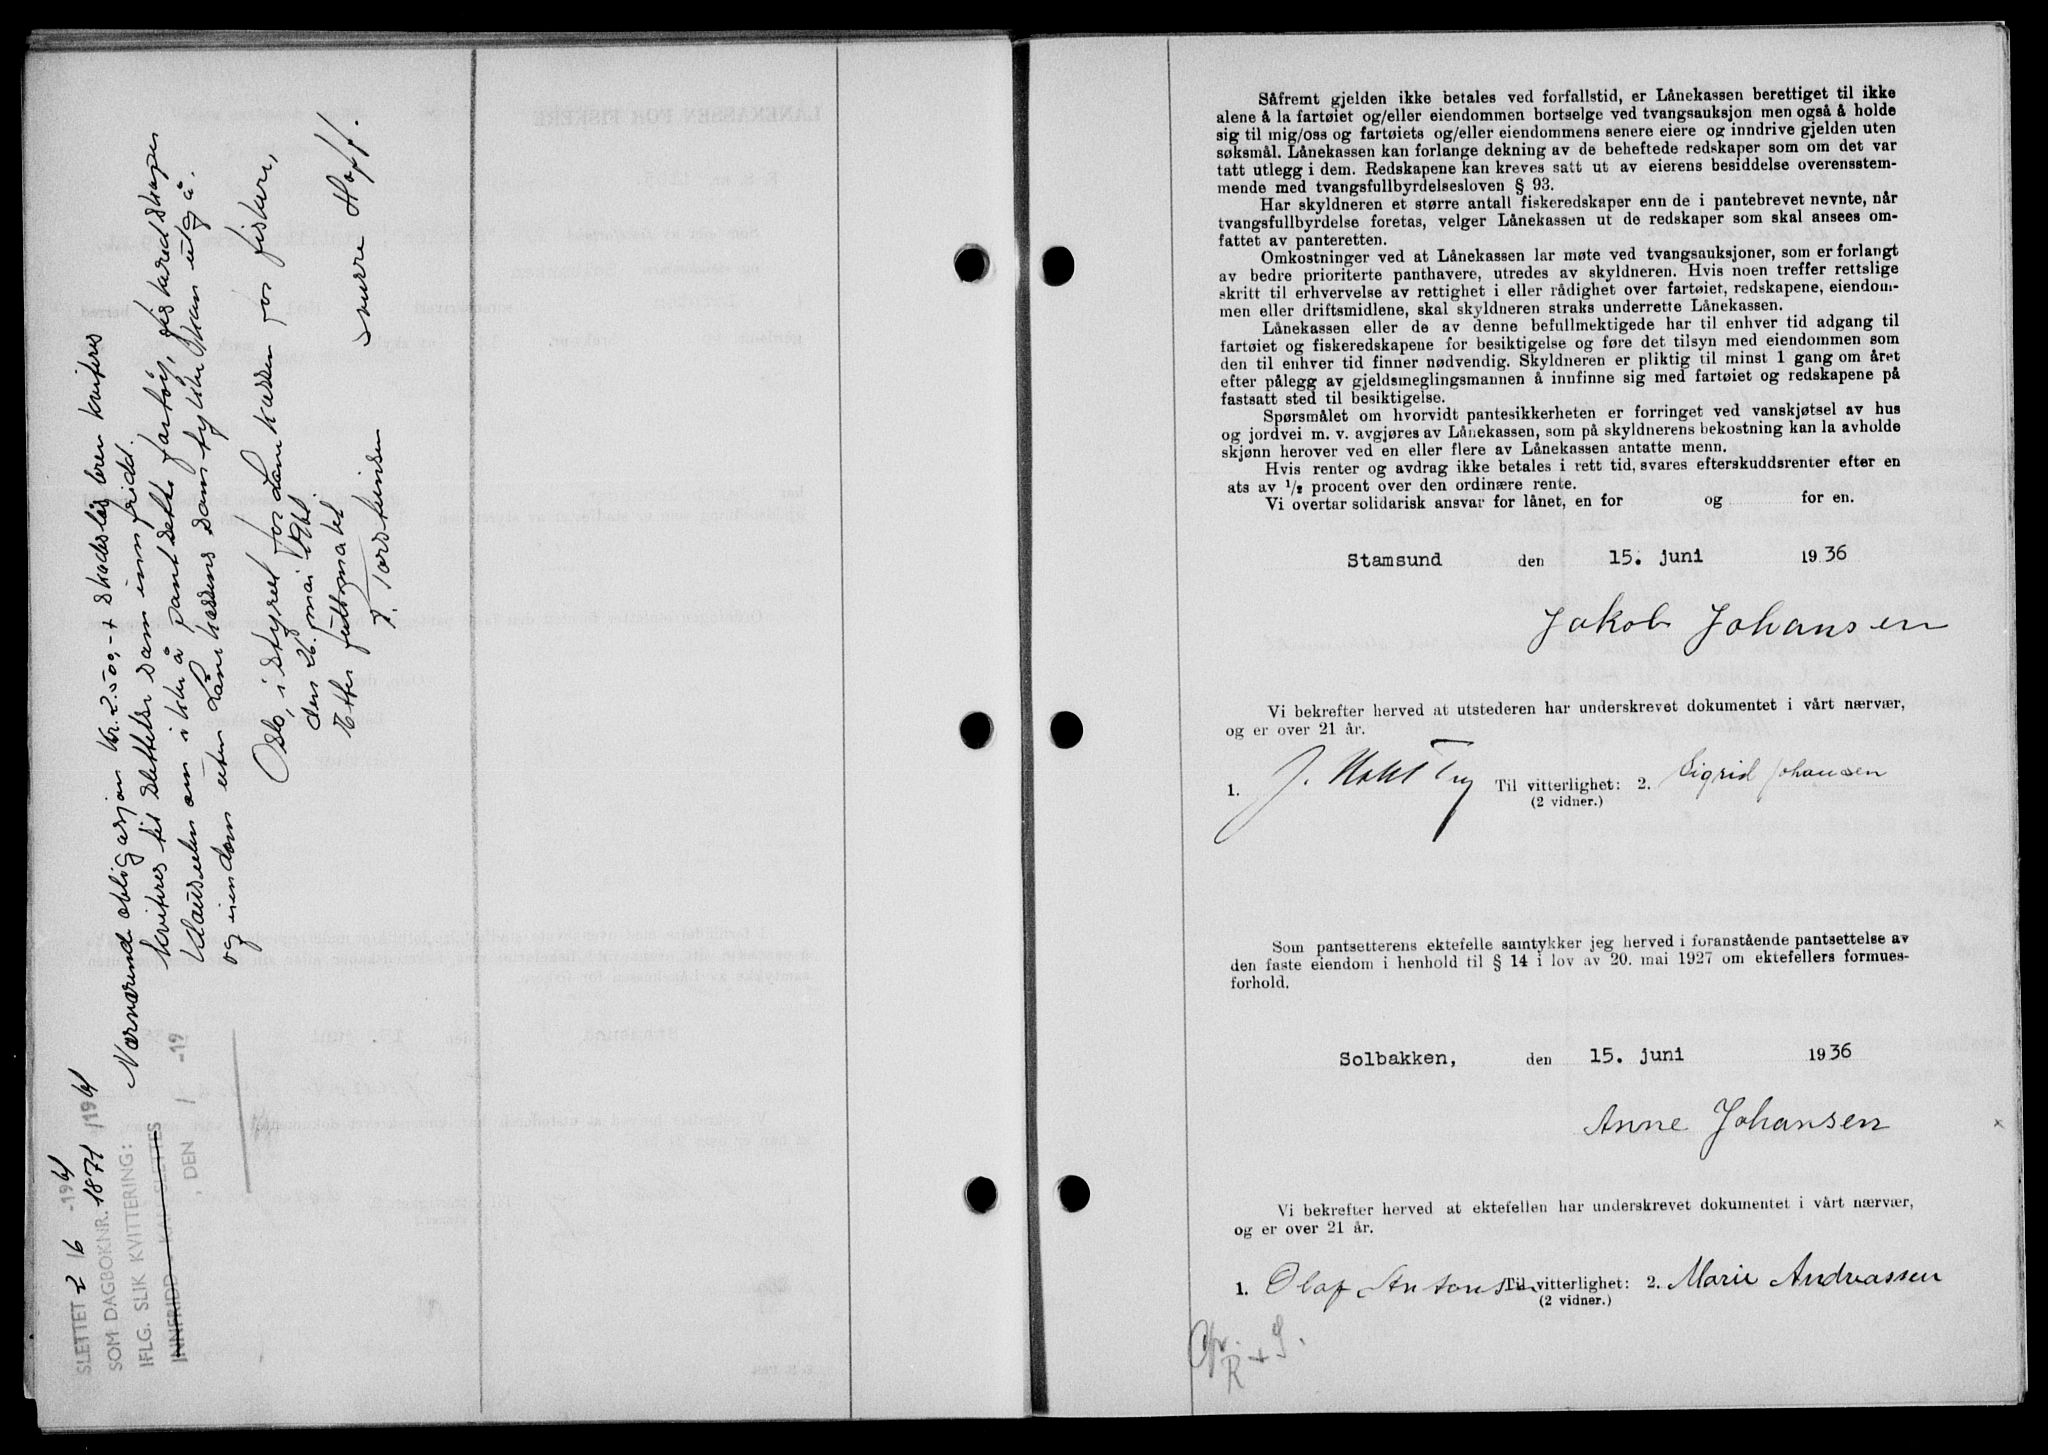 Nærværende obligasjon kr. 2.500,- + skadesløsbrev kviteres
kviteres til slettelse som innfridd.
Klausulen om ikke å pantsette fartøy, fiskeredskaper
og eiendom uten Lånekassens samtykke kan utgå.
Oslo, i styret for Lånekassen for fiskere,
den 26. mai 1961
Etter fullmakt
Sverre Hoff.
T. Torsteinsen
SLETTET 2/6 -1961
SOM DAGBOKNR. 1871/1961
IFLG. SLIK KVITTERING:
INNFRIDD KAN SLETTES
, DEN / -19
Såfremt gjelden ikke betales ved forfallstid, er Lånekassen berettiget til ikke
alene å la fartøiet og/eller eiendommen bortselge ved tvangsauksjon men også å holde
sig til mig/oss og fartøiets og/eller eiendommens senere eiere og inndrive gjelden uten
søksmål. Lånekassen kan forlange dekning av de beheftede redskaper som om det var
tatt utlegg i dem. Redskapene kan kreves satt ut av eierens besiddelse overensstem-
mende med tvangsfullbyrdelsesloven § 93.
Har skyldneren et større antall fiskeredskaper enn de i pantebrevet nevnte, når
tvangsfullbyrdelse foretas, velger Lånekassen ut de redskaper som skal ansees om-
fattet av panteretten.
Omkostninger ved at Lånekassen lar møte ved tvangsauksjoner, som er forlangt
av bedre prioriterte panthavere, utredes av skyldneren. Hvis noen treffer rettslige
skritt til erhvervelse av rettighet i eller rådighet over fartøiet, redskapene, eiendom-
men eller driftsmidlene, skal skyldneren straks underrette Lånekassen.
Lånekassen eller de av denne befullmektigede har til enhver tid adgang til
fartøiet og fiskeredskapene for besiktigelse og føre det tilsyn med eiendommen som
den til enhver tid finner nødvendig. Skyldneren er pliktig til minst 1 gang om året
efter pålegg av gjeldsmeglingsmannen å innfinne sig med fartøiet og redskapene på
fastsatt sted til besiktigelse.
Spørsmålet om hvorvidt pantesikkerheten er forringet ved vanskjøtsel av hus
og jordvei m. v. avgjøres av Lånekassen, som på skyldnerens bekostning kan la avholde
skjønn herover ved en eller flere av Lånekassen antatte menn.
Hvis renter og avdrag ikke betales i rett tid, svares efterskuddsrenter efter en
ats av 1/2 procent over den ordinære rente.
Vi overtar solidarisk ansvar for lånet, en for og for en.
Stamsund den 15. juni 1936
Jakob Johansen
Vi bekrefter herved at utstederen har underskrevet dokumentet i vårt nærvær,
og er over 21 år.
1. J. Til vitterlighet: 2. Sigrid Johansen
(2 vidner.)
Som pantsetterens ektefelle samtykker jeg herved i foranstående pantsettelse av
den faste eiendom i henhold til § 14 i lov av 20. mai 1927 om ektefellers formues-
forhold.
Solbakken, den 15. juni 1936
Anne Johansen
Vi bekrefter herved at ektefellen har underskrevet dokumentet i vårt nærvær,
og er over 21 år.
1. Olaf Antonsen Til vitterlighet: 2. Marie Andreassen
(2 vidner.)